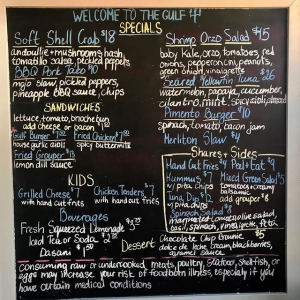 WELCOME TO THE GULF
SPECIALS
Soft Shell Crab $18
andouille + mushroom hash,
tomatillo salsa, pickled peppers
BBQ Pork Tacos $10
mojo slaw, pickled peppers,
pineapple BBQ sauce, chips
SANDWICHES
lettuce, tomato, brioche bun
add cheese or bacon
Gulf Burger
house garlic aioli
Fried Chicken
spicy buttermilk
Fried Grouper
lemon dill sauce
KIDS
Grilled Cheese $7
with hand cut fries
Chicken Tenders, $7
with hand cut fries
Beverages
Fresh Squeezed Lemonade
Iced Tea or Soda
Dasani
Shrimp Orzo Salad $15
baby kale, orzo, tomatoes, red
onions, pepperoncini, peanuts,
green onion vinaigrette
Seared Yellowfin Tuna $26
watermelon, papaya, cucumber,
cilantro, mint,
Pimento Burger $10
spinach, tomato, bacon jam
Merliton Slaw
Shares + Sides
Hand Cut Fries
Hummus $7
w/ pita chips
Tuna Dip
w/ pita chips
Mixed Green Salad
tomatoes, creamy
balsamic
add grouper
Spinach Salad
marinated tomatoes,
Dessert
Chocolate Chip Brownie $5
dulce de leche cream, blackberries,
caramel sauce
consuming raw or undercooked meats, poultry, seafood, shellfish, or
eggs may increase your risk of foodborn illness, especially if you
have certain medical conditions